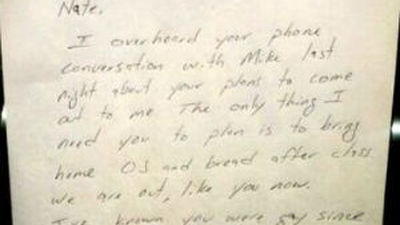 Nate,
I overheard your phone
conversation with Mike last
night about your plans to come
out to me. The only thing I
need you to plan is to bring
home OJ and bread after class
we are out, like you now.
I've known you were gay since